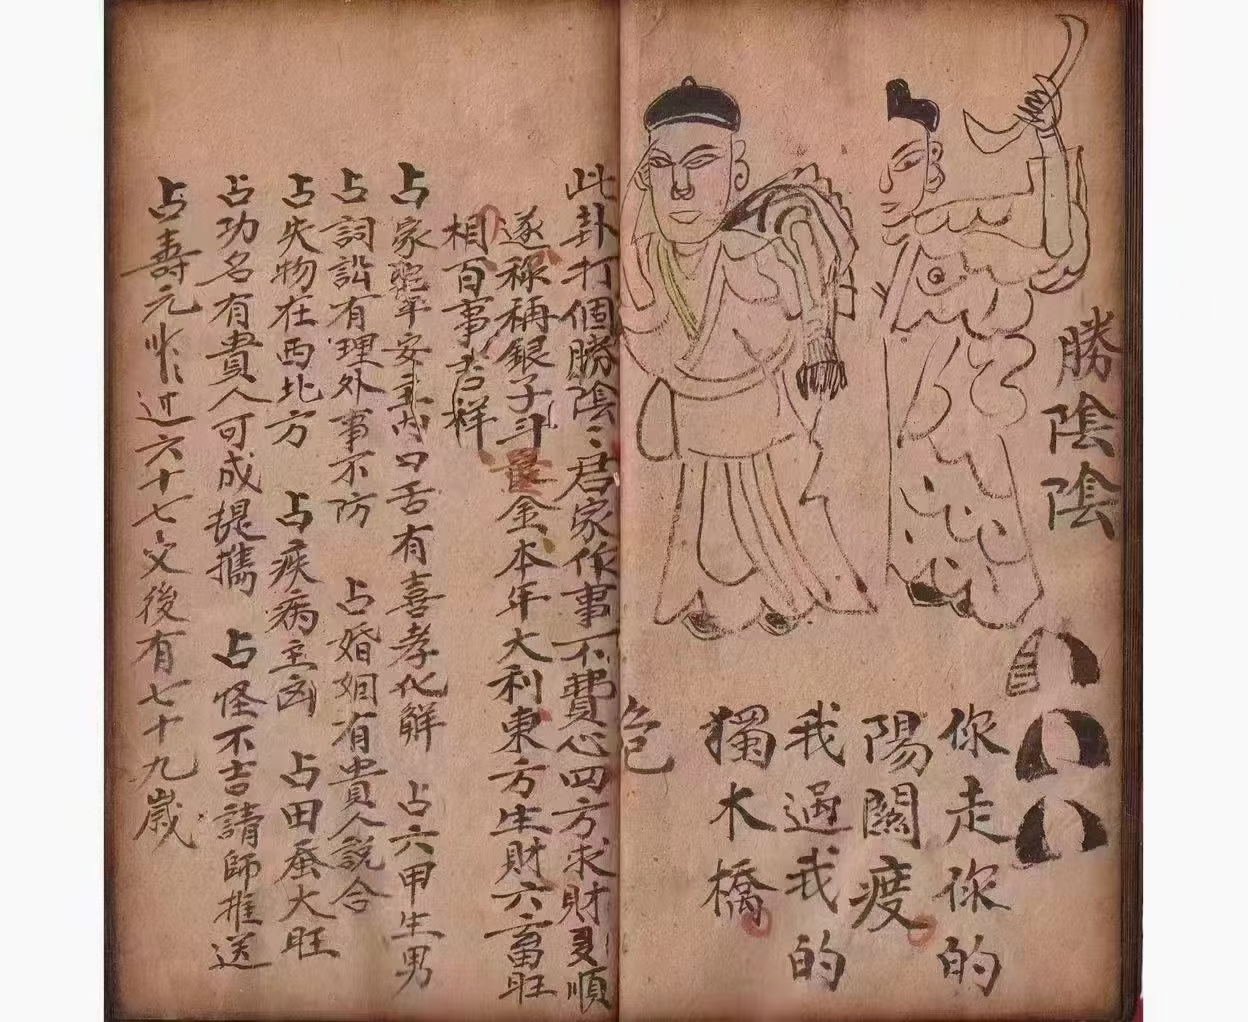 勝陰陰
你走你的
陽關度
我過我的
獨木橋
此卦打個勝陰〻君家作事不費心四方求財多順
遂秤稱銀子斗量金本年大利東方生財六畜旺
相百事吉祥
占家宅平安主內口舌有喜孝化解 占六甲生男
占詞訟有理外事不防 占婚姻有貴人說合
占失物在西北方 占疾病主凶 占田蚕大旺
占功名有貴人可成提攜 占怪不吉請師推送
占壽元 過六十七 後有七十九歲